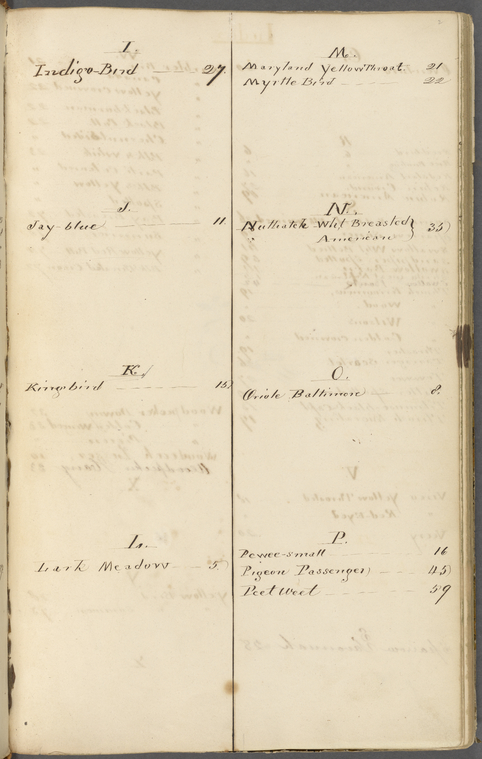 I.
Indigo-Bird 27.
J.
Jay-blue 11.
K.
Kingbird 15
L.
Lark Meadow 5
M.
Maryland Yellow Throat 21
Myrtle Bird 22
N.
Nuthatch Wht Breasted 35
American
O.
Oriole Baltimore 8.
P.
Pewee-small 16
Pigeon Passenger 45
Peet weet 59